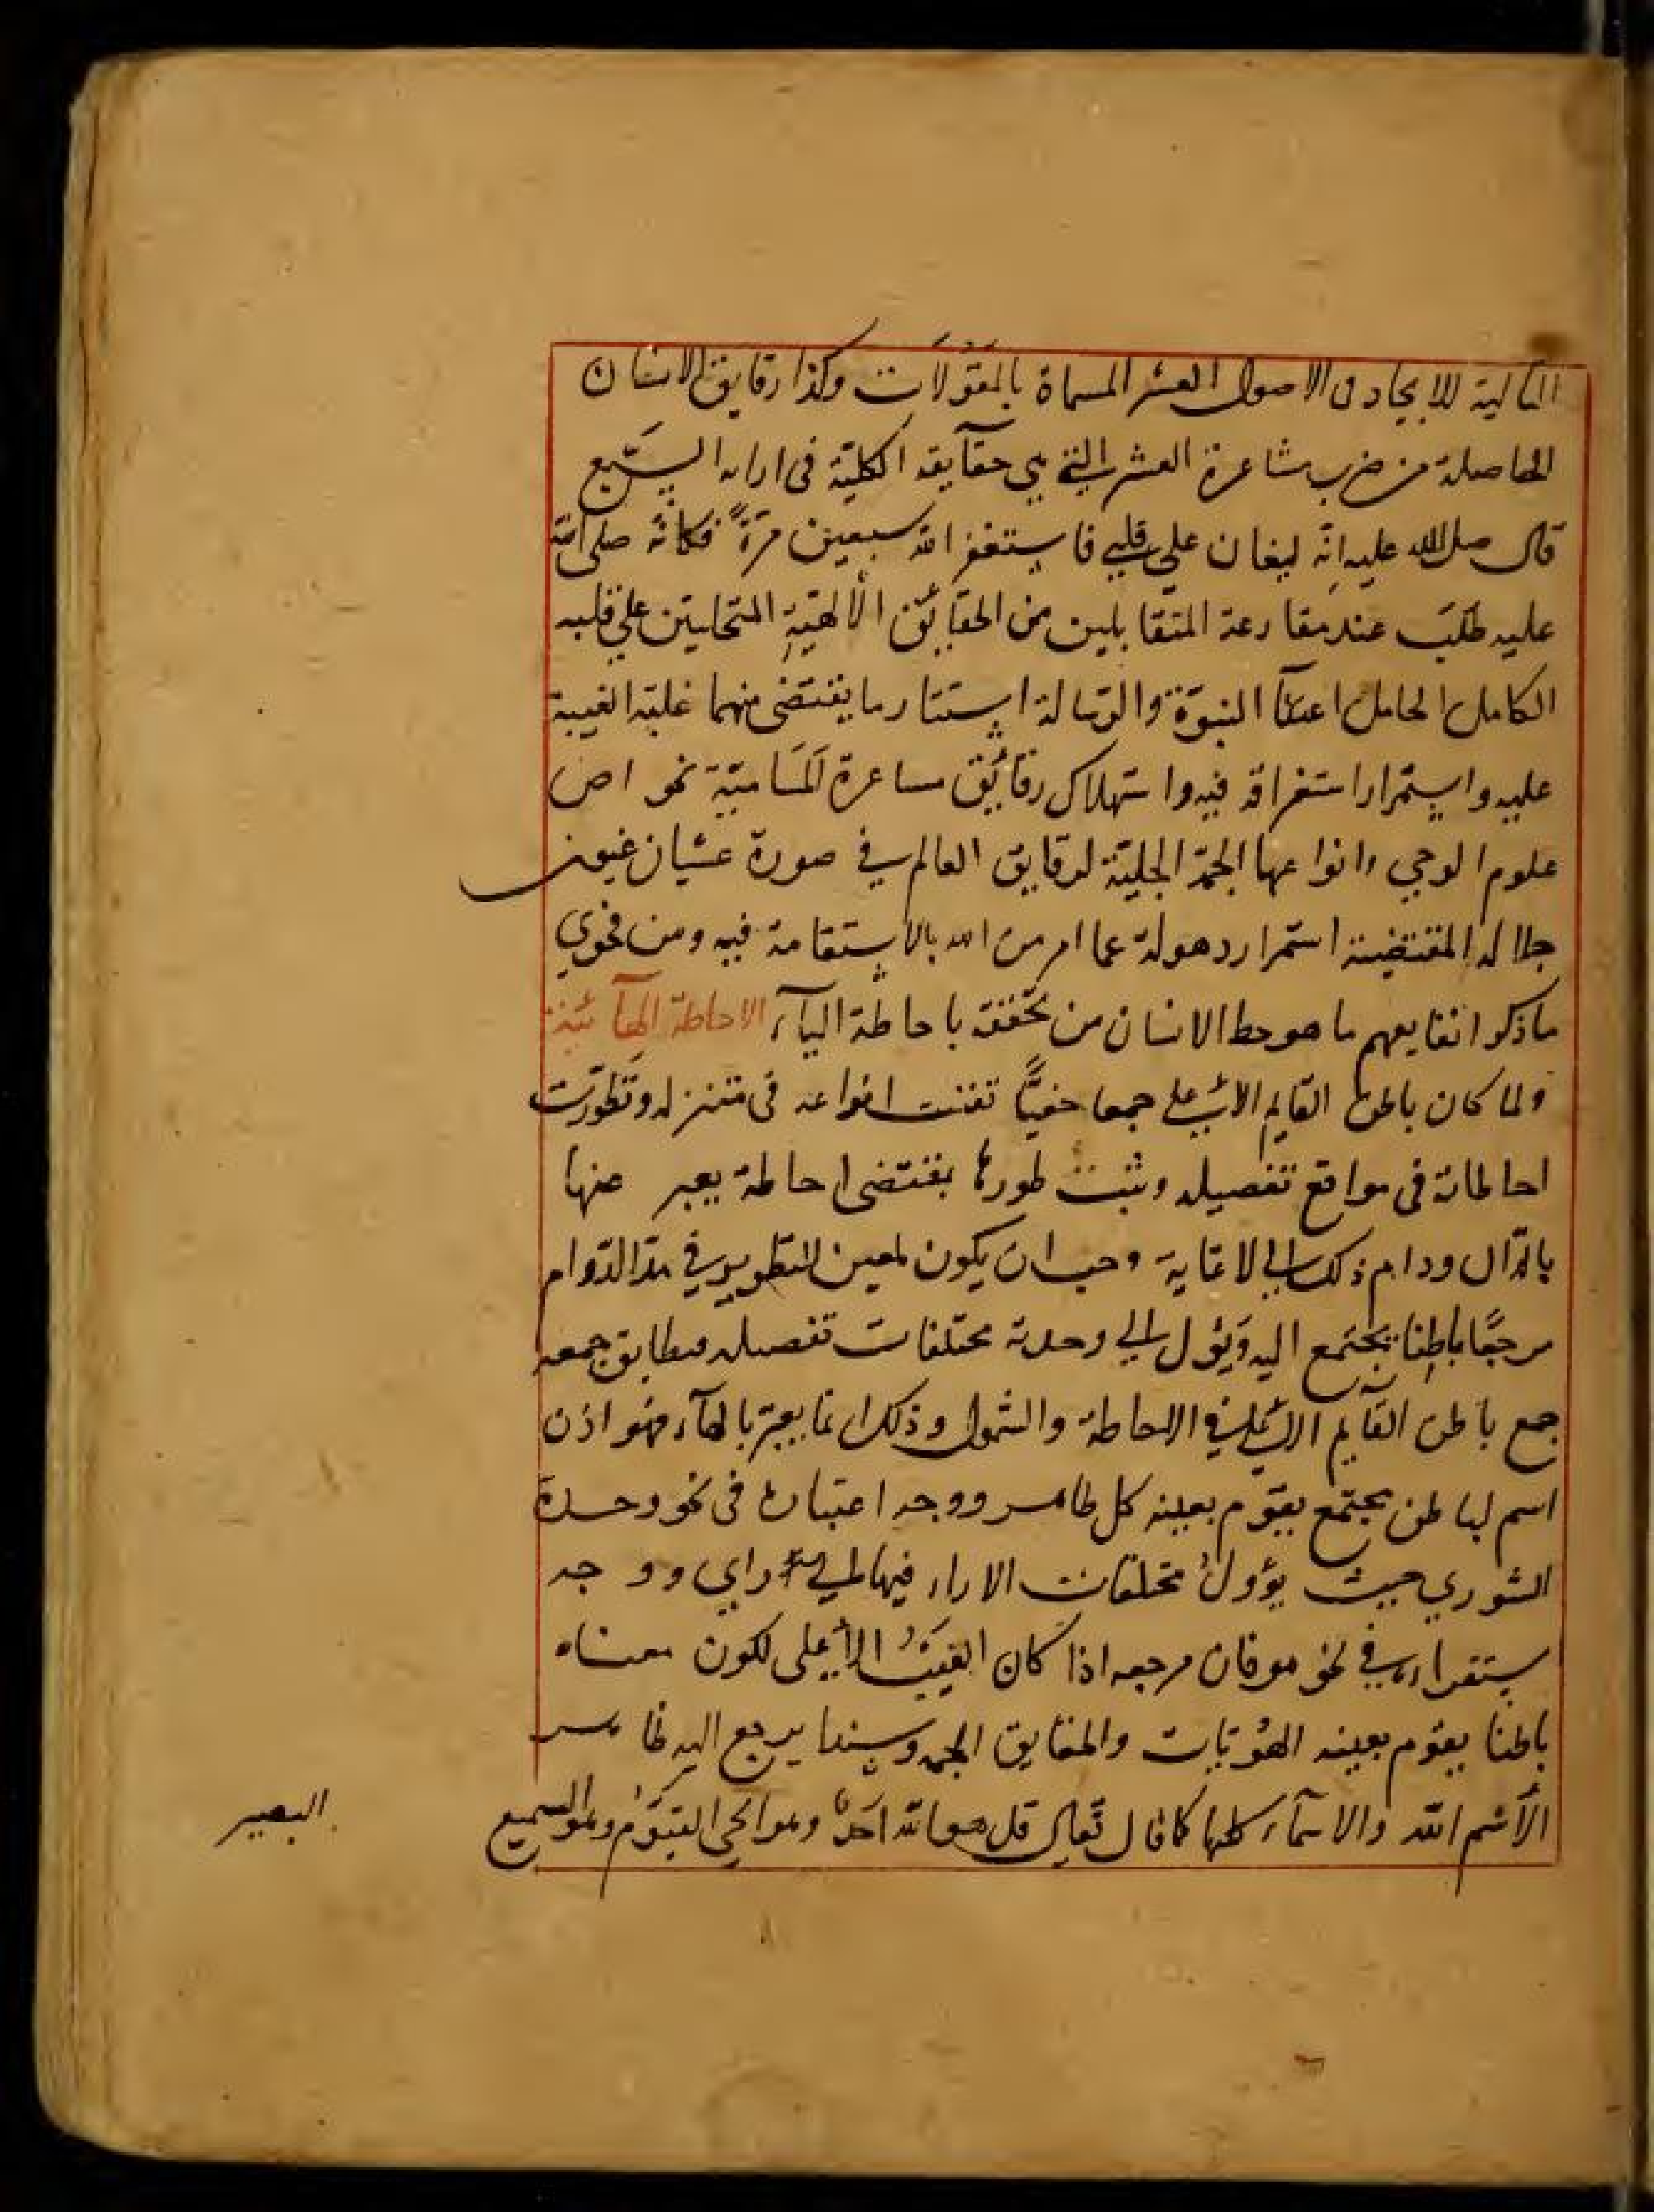 للايجاد فى الاصول العشر المسماة بالمَقُولَات وكذا رقايق الانسان
الحاصلة من ضرب مشاعرة العشر التي هى حقآيقه الكليّة فى السّبع
قال صلى الله عليه انّه ليغان على قلبي فاستغفر الله سبعين مرّةً فكانّه صلى الله
عليه طَلَبَ عند مقارعة المتقابلين من الحقايّق الألهيّةِ على قلبه
الكامل الحامل اعبآ النبوّة والرّسالة استتار ما يقتضى منهما غلبة الغيبة
عليه واستمرار استغراقه فيه واستهلاك رقايّق مساعرة نحو
علوم الوحي وانواعها الجمّة الجليّة لرقايق العالم في صورة غشيان غيون
جلاله المقتضية استمرار دهوله عما امر من الله بالاستقامة فيه ومن فحوي
ماذكر انفا يفهم ما هو حظ الانسان من تحققه باحاطة اليآء الاحاطة الهآئيّة
ولما كان باطن القايم الاعلى جمعا خفيًّا تفننت انواعه فى متنزله وتطورت
احاطاته فى مواقع تفصيله وثبت طورها بمقتضى احاطة يعبر عنها
بالدّال ودام ذلك الي لا غاية وجب ان يكون لمعين التطوير في هذا الدّوام
مرجعًا باطنا يجتمع اليه وَيؤل الي وحدته مختلفات تفصيله مطابق جمعه
جمع باطن القآيم الاعلي في الاحاطة والشمول وذلك انما يعبّر بالهآء فهو اذن
اسم لباطن مجتمع يقوّم بعينه كل ظاهر ووجد اعتباره فى نحو وحدة
الشوري حيث يؤولُ مختلفات الاراء فيها الي راي ووجه
يستقر في نحو هو فان مرجعه اذا كان الغيبُ الأعلى لكون معناه
باطنا يقوم بعينه الهُوّيات والحقايق الجمة يرجع اليه ظاهر
الأسم الله والاسمآء كلها كما قال تعالى قل هو الله احدٌ وهو الحي القيّوم وهو السميع
البصير